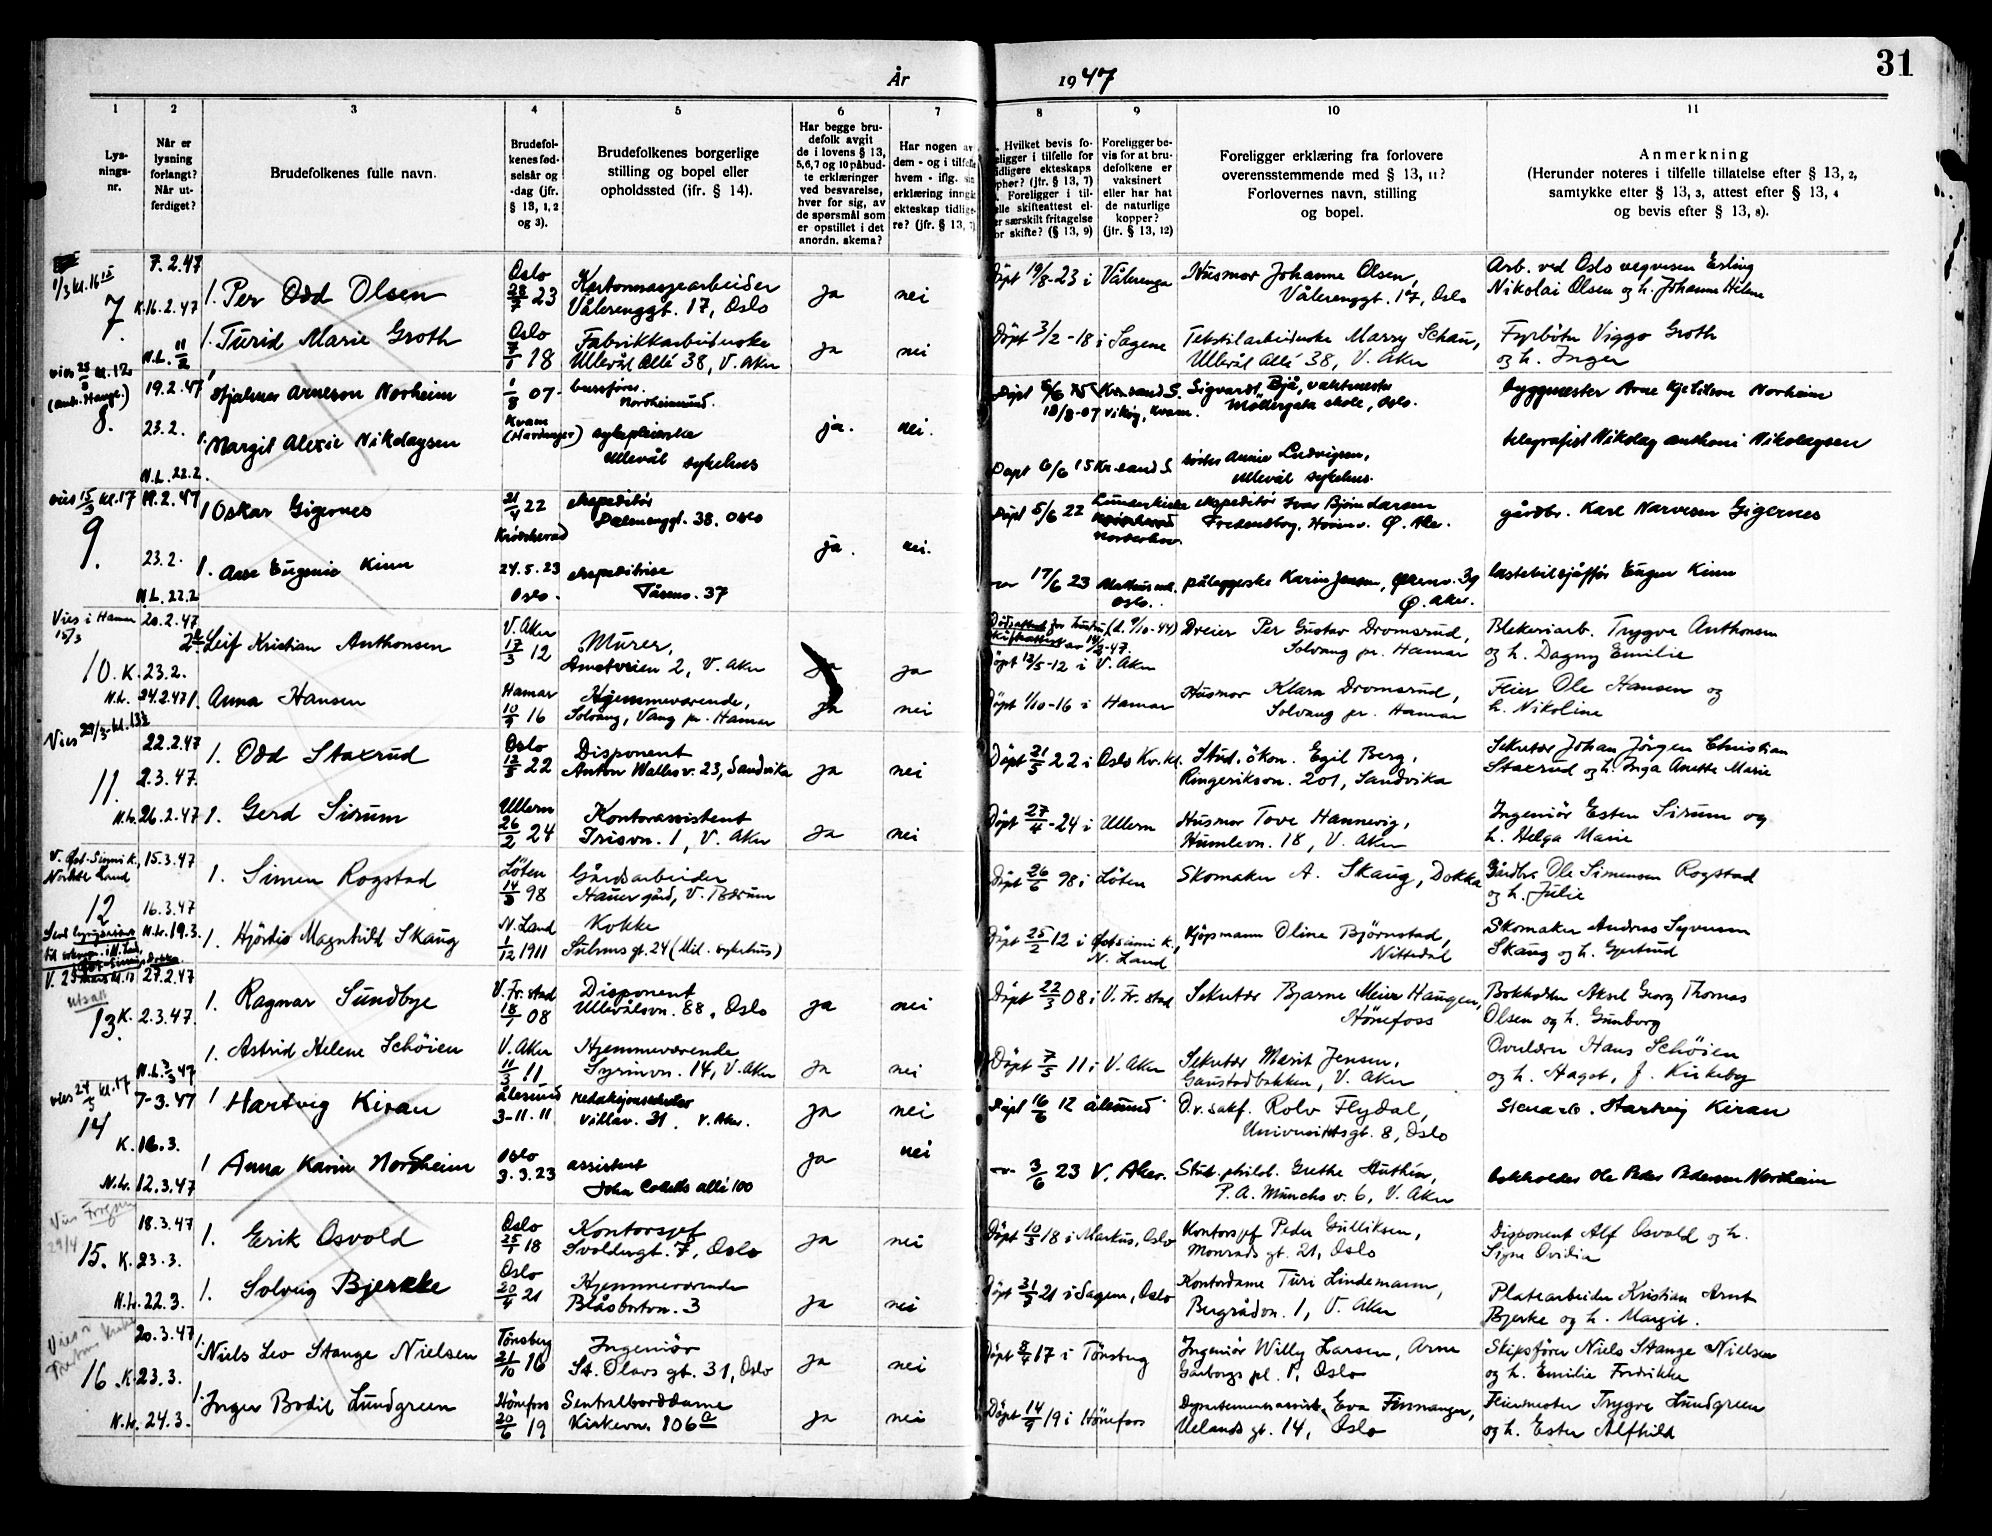 31
År 1947
1 2 3 4 5 6 7 8 9 10 11
Lys-
nings-
nr.
Når er
lysning
forlangt?
Når ut-
ferdiget?
Brudefolkenes fulle navn.
Brudefol-
kenes fød-
selsår og
-dag (jfr.
§ 13, 1, 2
og 3).
Brudefolkenes borgerlige
stilling og bopel eller
opholdssted (ifr. § 14).
Har begge bru-
defolk avgit
de i lovens § 13,
5,6,7 og 10 påbud-
te erklæringer
ved besvarelse,
hver for sig, av
de spørsmål som
er opstillet i det
anordn. skema?
Har nogen av
dem - og i tilfelle
hvem - iflg. sin
erklæring inngå
ekteskap tidlige-
re? (jfr. § 13, 7)
Hvilket bevis fo-
religger i tilfelle for
tidligere ekteskaps
ophør? (jfr. § 13, 7)
Foreligger i til-
felle skifteattest el-
ler særskilt fritagelse
for skifte? (§ 13, 9)
Foreligger be-
vis for at bru-
defolkene er
vaksinert
eller har hat
de naturlige
kopper?
(jfr. § 13, 12)
Foreligger erklæring fra forlovere
overensstemmende med § 13, 11?
Forlovernes navn, stilling
og bopel.
Anmerkning
(Herunder noteres i tilfelle tillatelse efter § 13, 2,
samtykke efter § 13, 3, attest efter § 13, 4
og bevis efter § 13, 8).
1/3 kl. 16
7. 7.2.47 K. 16.2.47 1. Per Odd Olsen Oslo 28/7 23 Kartonnasjearbeider Vålerenggt. 17, Oslo ja nei Döpt 19/8-23 i Vålerenga Husmor Johanne Olsen, Vålerenggt. 17, Oslo Arb. ved Oslo vegvesen Erling Nikolai Olsen og h. Johanne Helene
N.L. 11/2 1. Turid Marie Groth Oslo 7/1 18 Fabrikkarbeiderske Ullevål Allé 38, V. Aker ja nei Döpt 3/2-18 i Sagene Tekstilarbeiderske Marry Schau, Ullevål Allé 38, V. Aker Fyrböter Viggo Groth og h. Inger
8. 19.2.47 Hjalmar Arneson Norheim 1/8 07 Kvam (Hardanger) bussfører Norheimsund. ja. nei. 18/8-07 Vikøy, Kvam. Sigvardt Bjå, vaktmester Möllergata skole, Oslo. byggmester Arne Kjetilson Norheim
23.2. N.L. 22.2. 1. Margit Alexie Nikolaysen sykepleierske Ullevål sykehus Døpt 6/6 15 Kr.sand S. søster Annie Ludvigsen, Ullevål sykehus. telegrafist Nikolay Anthoni Nikolaysen
vies 15/3 kl. 17
9. 19.2.47 1 Oskar Gigernes 21/4 22 Krödsherad ekspeditör Dælenenggt. 38. Oslo ja. nei. Döpt 5/6 22 ekspeditör Ivar Bjön Larsen Fredensborg, Ø. Aker. gårdbr. Karl Narvesen Gigernes
23.2. N.L. 22.2 1. Aase Eugenie Kinn 24.5.23 Oslo. ekspeditrise Tåsenv. 37 17/6 23 Oslo. påleggerske Karin Jensen, Ø. Aker. lastebilsjåffør Eugen Kinn
Vies i Hamar 15/3
10. 20.2.47 K. 23.2. 2den Leif Kristian Anthonsen V. Aker 17/3 12 Murer, V. Aker ja ja Döpt 12/5-12 i V. Aker Dreier Per Gustav Dromsrud, Solvang pr. Hamar Blekeriarb. Trygve Anthonsen og h. Dagny Emilie
N.L. 24.2.47 1. Anna Hansen Hamar 10/9 16 Hjemmeværende, Solvang, Vang pr. Hamar ja nei Döpt 1/10-16 i Hamar Husmor Klara Dromsrud, Solvang pr. Hamar Feier Ole Hansen og h. Nikoline
Vies 29/3
11. 22.2.47 2.3.47. 1. Odd Staxrud Oslo 12/3 22 Disponent Anton Walles v. 23, Sandvika ja nei Döpt 21/5 22 i Oslo Stud. ökon. Egil Berg, Ringeriksvn. 201, Sandvika Sekretær Johan Jörgen Christian Staxrud og h. Inga Anette Marie
N.L. 26.2.47 1. Gerd Sirum Ullern 26/2 24 Kontorassistent Irisvn. 1, V. Aker ja nei Döpt 27/4-24 i Ullern Husmor Tove Hannevig, Humlevn. 18, V. Aker Ingeniör Esten Sirum og h. Helga Marie
12 15.3.47 16.3.47 1. Simen Rogstad Löten 14/3 98 Gårdsarbeider Hauger gård, V. Bærum Döpt 26/6 98 i Löten Skomaker A. Skaug, Dokka Gårdbr. Ole Simensen Rogstad og h. Julie
N.L. 19.3. 1. Hjördis Magnhild Skaug N. Land 1/12 1911 Kokke Döpt 25/2 12 i N. Land Kjöpmann Oline Björnstad, Nittedal Skomaker Andreas Syversen Skaug og h. Gjertrud
13. 27.2.47 K. 2.3.47. 1. Ragnar Sundbye V. Fr.stad 18/1 08 Disponent Ullevålsvn. 88, Oslo ja nei Döpt 22/3 08 i V. Fr.stad Sekretær Bjarne Meier Haugen, Hönefoss Bokholder Aksel Georg Thomas Olsen og h. Gunborg
N.L. 3/3 47 1. Astrid Helene Schöien V. Aker 11/3 11 Hjemmeværende Syrinvn. 14, V. Aker ja nei Döpt 7/5 11 i V. Aker Sekretær Marit Jensen, Gaustadbakken, V. Aker Hans Schöien og h. Hagot, f. Kirkeby
14 7-3.47 1 Hartvig Kiran Ålesund 3-11.11 redaksjonssekretær Villav. 31. V. Aker. ja nei Döpt 16/6 12 Ålesund O.r.sakf. Rolv Flydal, Universitetsgt. 8, Oslo Hartvig Kiran
K. 16.3. N.L. 12.3.47 1 Anna Karin Nordheim Oslo 3.3.23 assistent John Colletts allé 100 ja nei 3/6 23 V. Aker. Stud. philol. Grethe P. A. Munchs v. 6, V. Aker bokholder Ole Peder Pedersen Nordheim
Vies Frogner 29/4
15. 18.3.47 K. 23.3. 1. Erik Osvold Oslo 25/1 18 Kontorsjef Svoldergt. 7, Oslo ja nei Döpt 10/3 18 i Markus, Oslo Kontorsjef Peder Gulliksen, Monrads gt. 21, Oslo Disponent Alf Osvold og h. Signe Ovidia
N.L. 22.3. 1. Solveig Bjerke Oslo 20/4 21 Hjemmeværende Blåsbortvn. 3 ja nei Döpt 31/7 21 i Sagene, Oslo Kontordame Turi Lindemann, Bergrådvn. 1, V. Aker Platearbeider Kristian Arnt Bjerke og h. Margit.
16 20.3.47 K. 23.3. 1. Niels Leo Stange Nielsen Tönsberg 21/10 16 Ingeniör St. Olavs gt. 31, Oslo ja nei Döpt 8/4 17 i Tönsberg Ingeniör Willy Larsen, Arne Garborgs pl. 1, Oslo Skipsförer Niels Stange Nielsen og h. Emilie Fredrikke
N.L. 24.3. 1. Inger Bodil Lundgreen Hönefoss 20/6 19 Sentralborddame Kirkevn. 106a ja nei Döpt 14/9 19 i Hönefoss Departementsassist. Eva Finnanger, Uelands gt. 14, Oslo Feiermester Trygve Lundgreen og h. Ester Alfhild